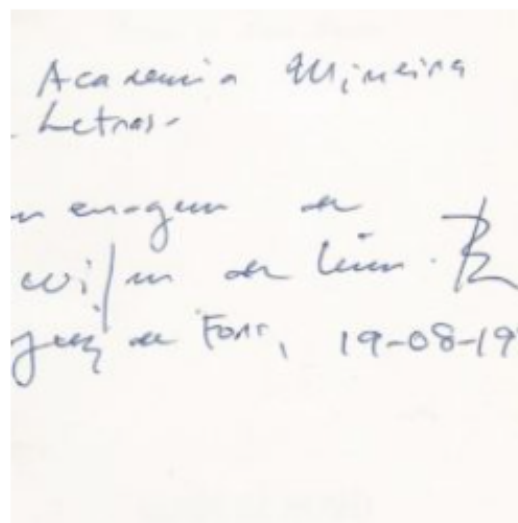 Academia Mineira
Letras-
menagem de
Wilson de Lima
Juiz de Fora, 19-08-19